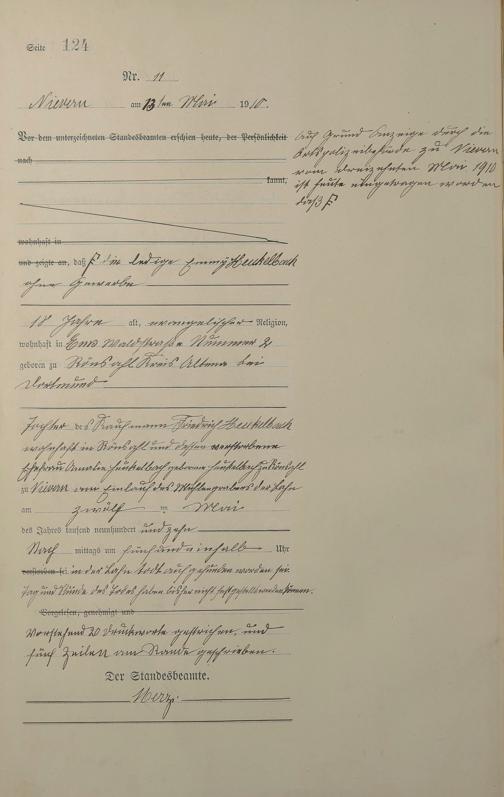 Seite 124
Nr. 11
Nievern am 13ten Mai 1910.
Vor dem unterzeichneten Standesbeamten erschien heute, der Persönlichkeit
nach
kannt,
Auf Grund Anzeige durch die
Ortspolizeibehörde zu Nievern
vom dreizehnten Mai 1910
ist heute eingetragen worden
daß F
wohnhaft in
und zeigte an, daß F die ledige Emmy Heukelbach
ohne Gewerbe
18 Jahre alt, evangelischer Religion,
wohnhaft in Ems Waldstraße Nummer 2
geboren zu Rönsahl Kreis Altena bei
Dortmund
Tochter des Kaufmann Friedrich Heukelbach
wohnhaft in Rönsahl und dessen verstorbene
Ehefrau Amalie Heukelbach geborene Heukelbach zu Rönsahl
zu Nievern am Einlauf des Mühlengrabens der Lahn
am zwölf ten Mai
des Jahres tausend neunhundert und zehn
Nach mittags um fünf und einhalb Uhr
verstorben sei in der Lahn todt aufgefunden worden sei
Tag und Stunde des Todes haben bisher nicht festgestellt werden können.
Vorgelesen, genehmigt und
Vorstehend 20 Druckworte gestrichen, und
fünf Zeilen am Rande geschrieben.
Der Standesbeamte.
Merz